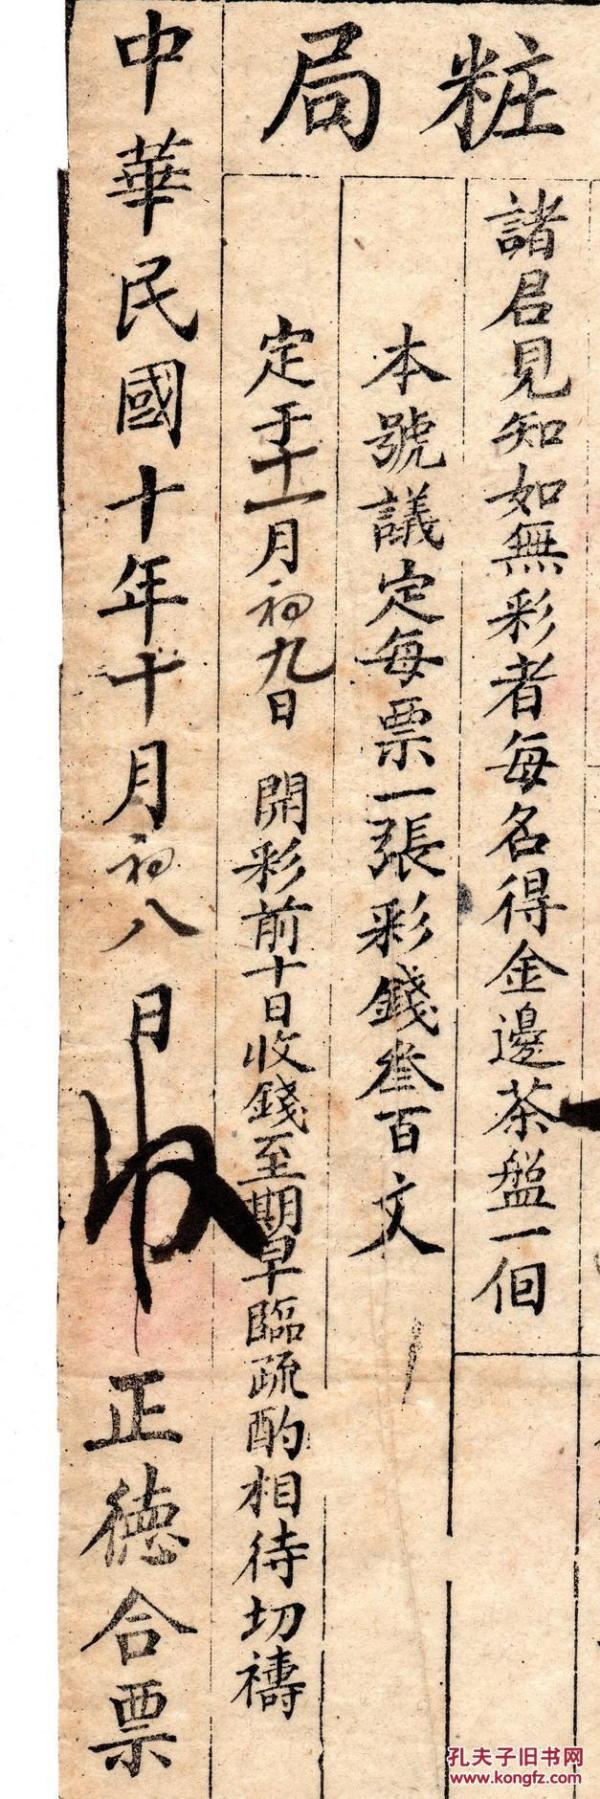 粧局
諸君見知如無彩者每名得金邊茶盤一個
本號議定每票一張彩錢叁百文
定于十一月初九日 開彩前十日收錢至期早臨疏酌相待切禱
中華民國十年十月初八日 收 正德合票
孔夫子旧书网
www.kongfz.com